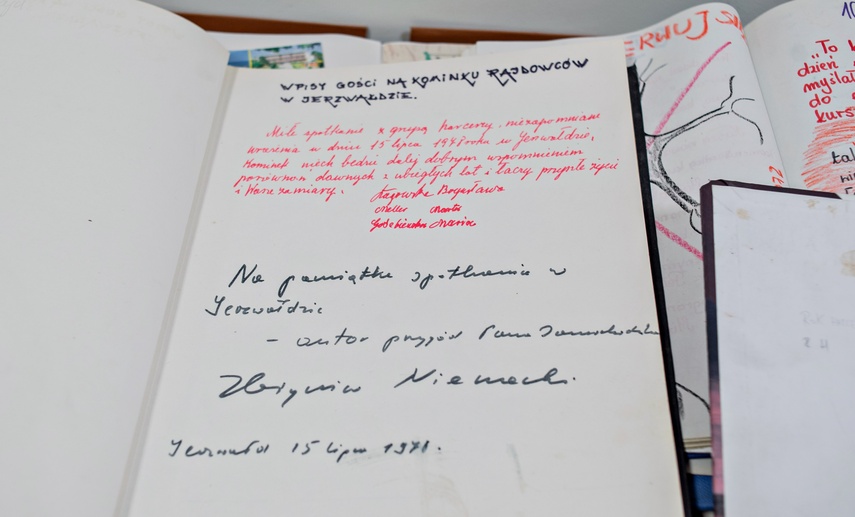 WPISY GOŚCI NA KOMINKU RAJDOWCÓW
W JERZWAŁDZIE.
Miłe spotkanie z grupą harcerzy, niezapomniane
wrażenia w dniu 15 lipca 1971 roku w Jerzwałdzie.
Kominek niech będzie dalej dobrym wspomnieniem
dawnych z ubiegłych lat i łączy przyszłe życie
i Wasze zamiary.
Bogusława
Maria
Na pamiątkę spotkania w
Jerzwałdzie
- autor przygód Pana Samochodzika
Zbigniew Nienacki.
Jerzwałd 15 lipca 1971.
"To
dzień
myślał
do